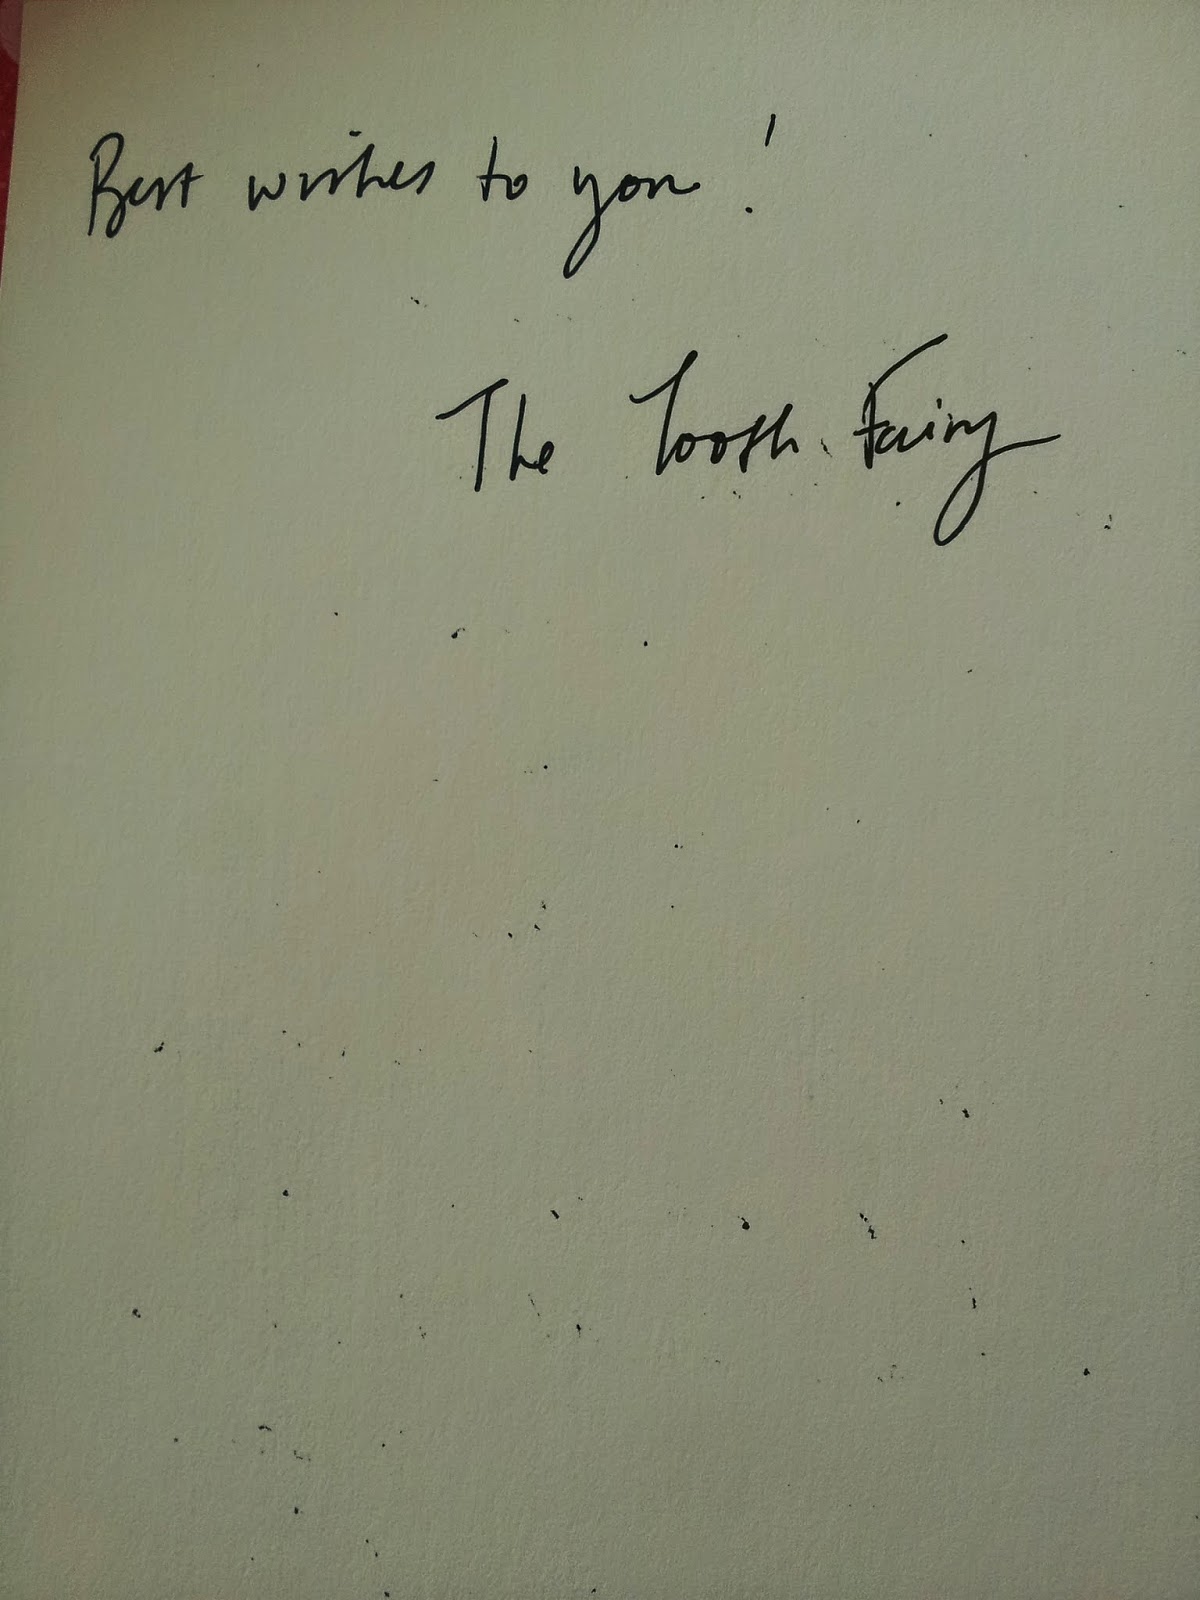 Best wishes to you!
The Tooth Fairy